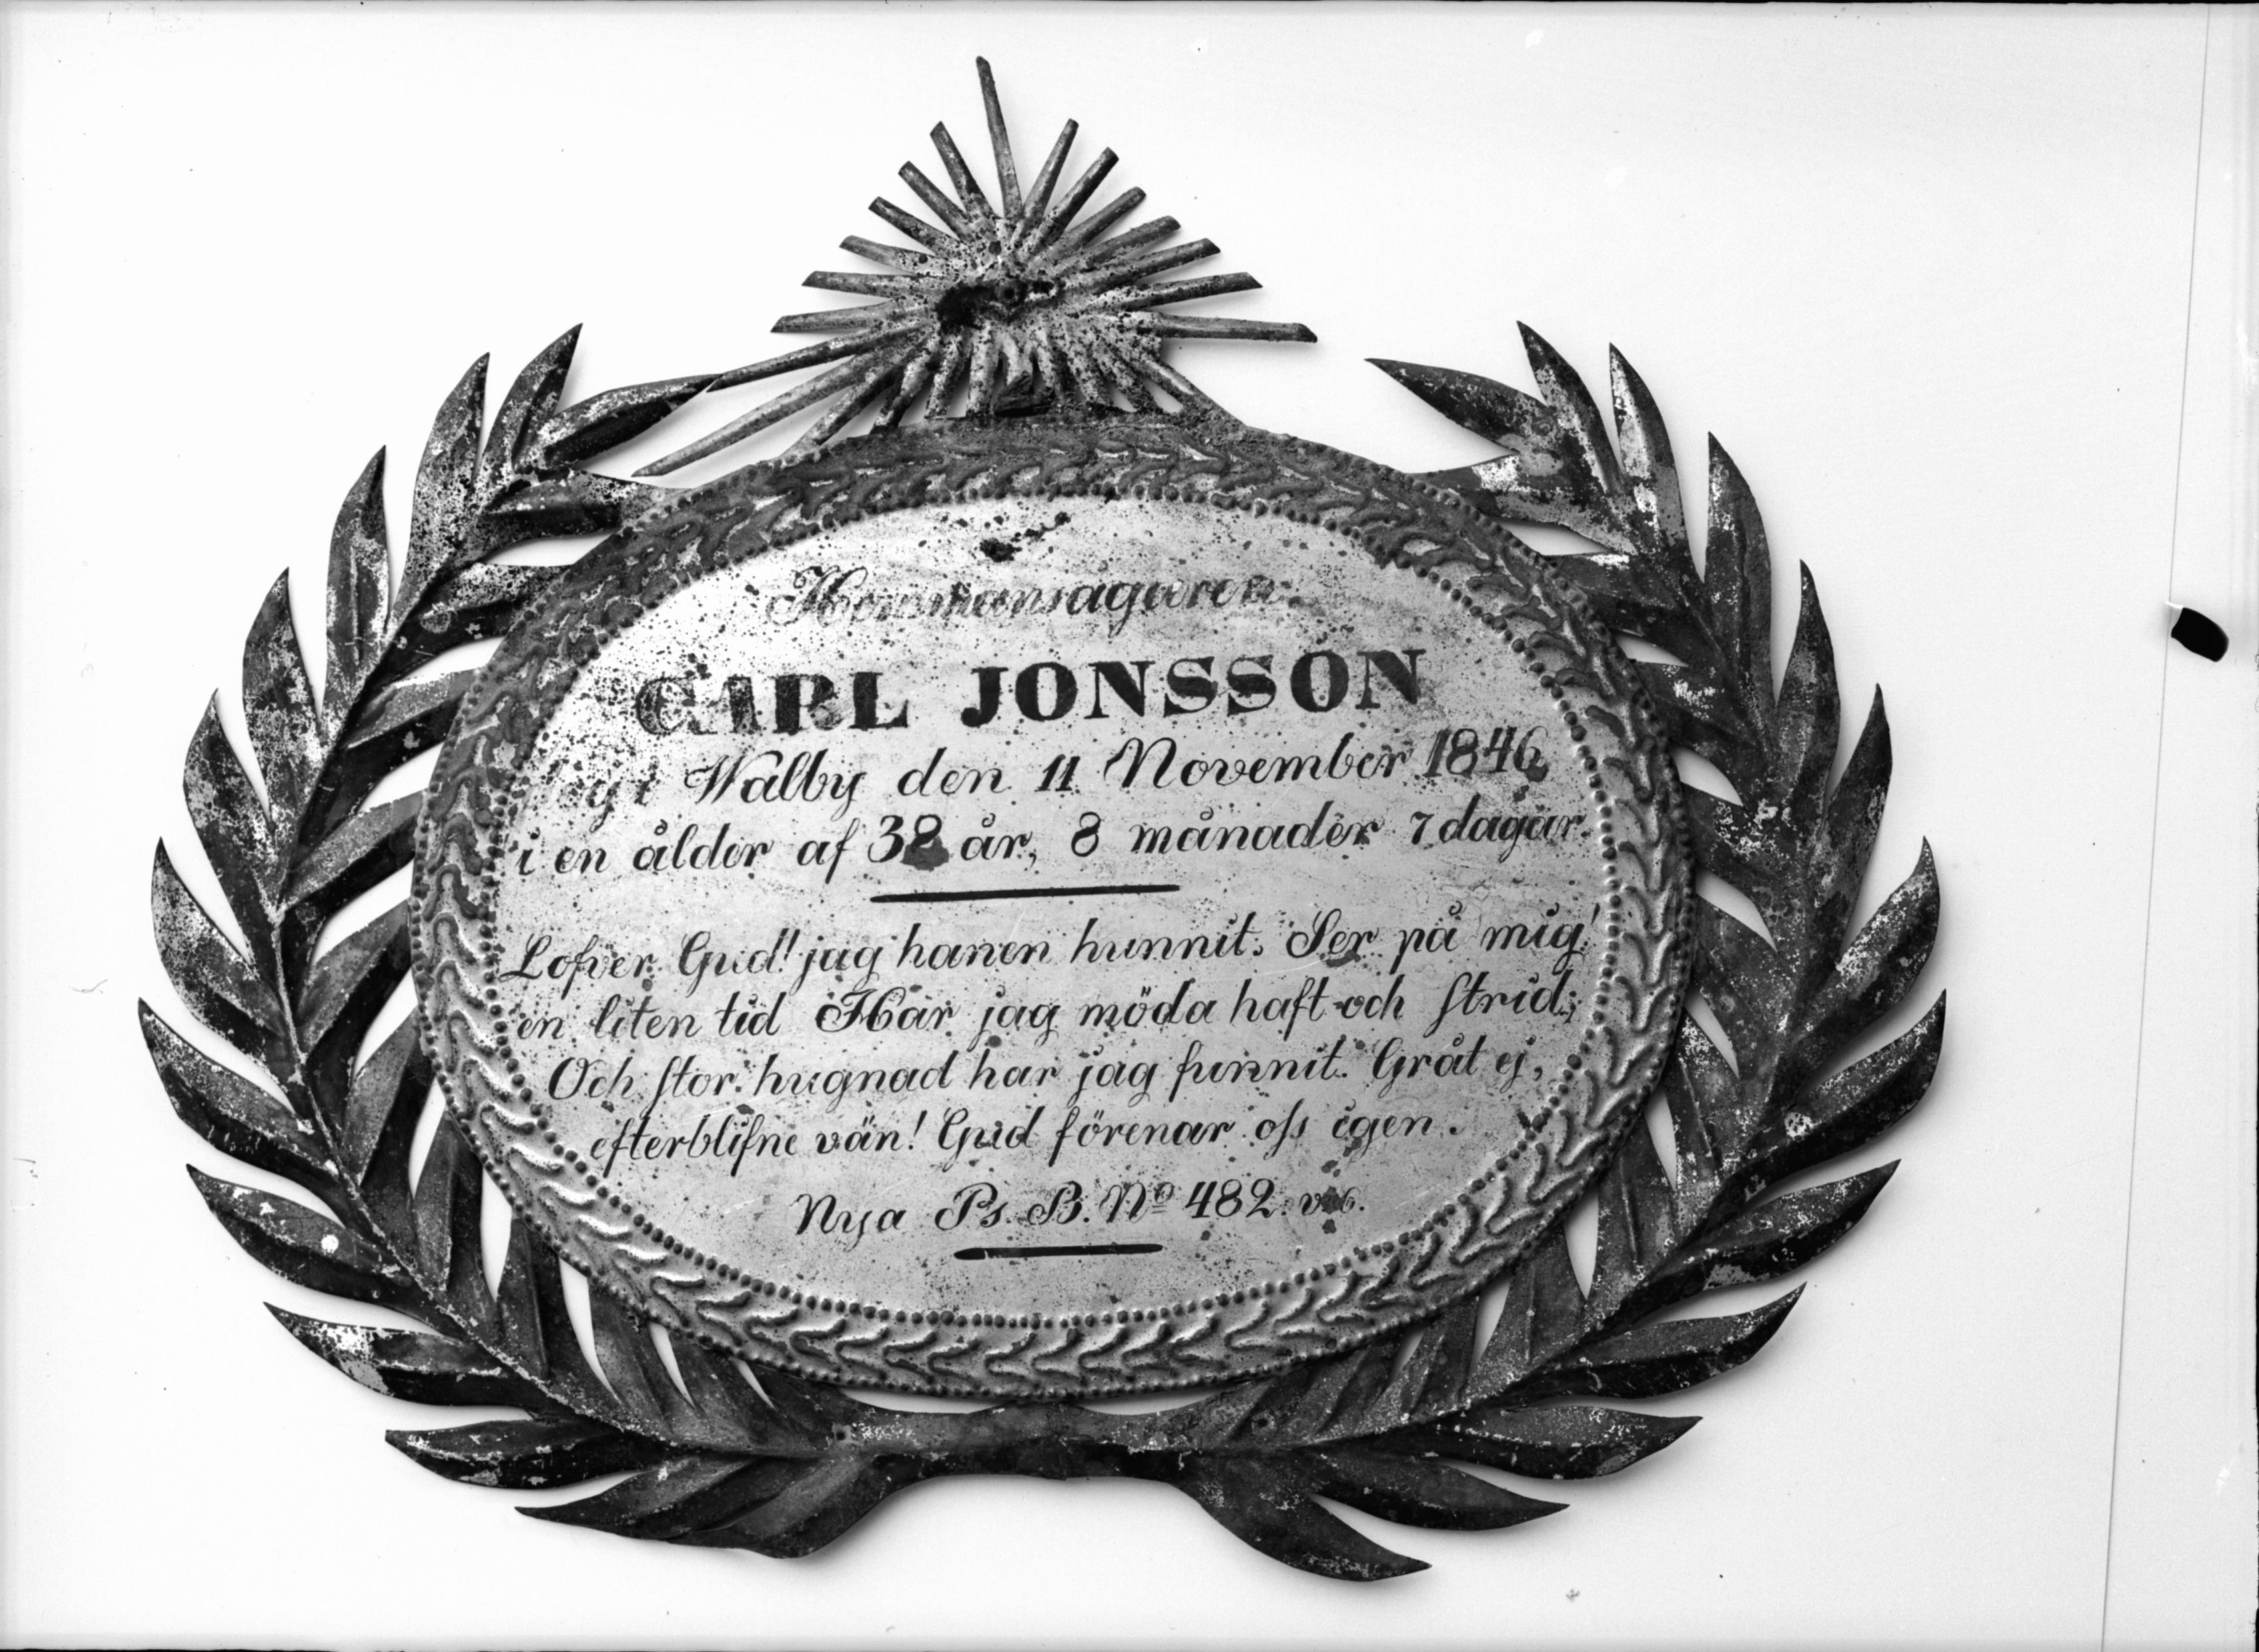 Hemmansägaren
CARL JONSSON
i Walby den 11 November 1846
i en ålder af 38 år, 8 månader 7 dagar.
Lofver Gud! jag hamnen hunnit. Ser på mig!
en liten tid Har jag möda haft och strid;
Och stor hugnad har jag funnit. Gråt ej,
efterblifne vän! Gud förenar oss igen.
Nya Ps. B. No 482. v. 6.